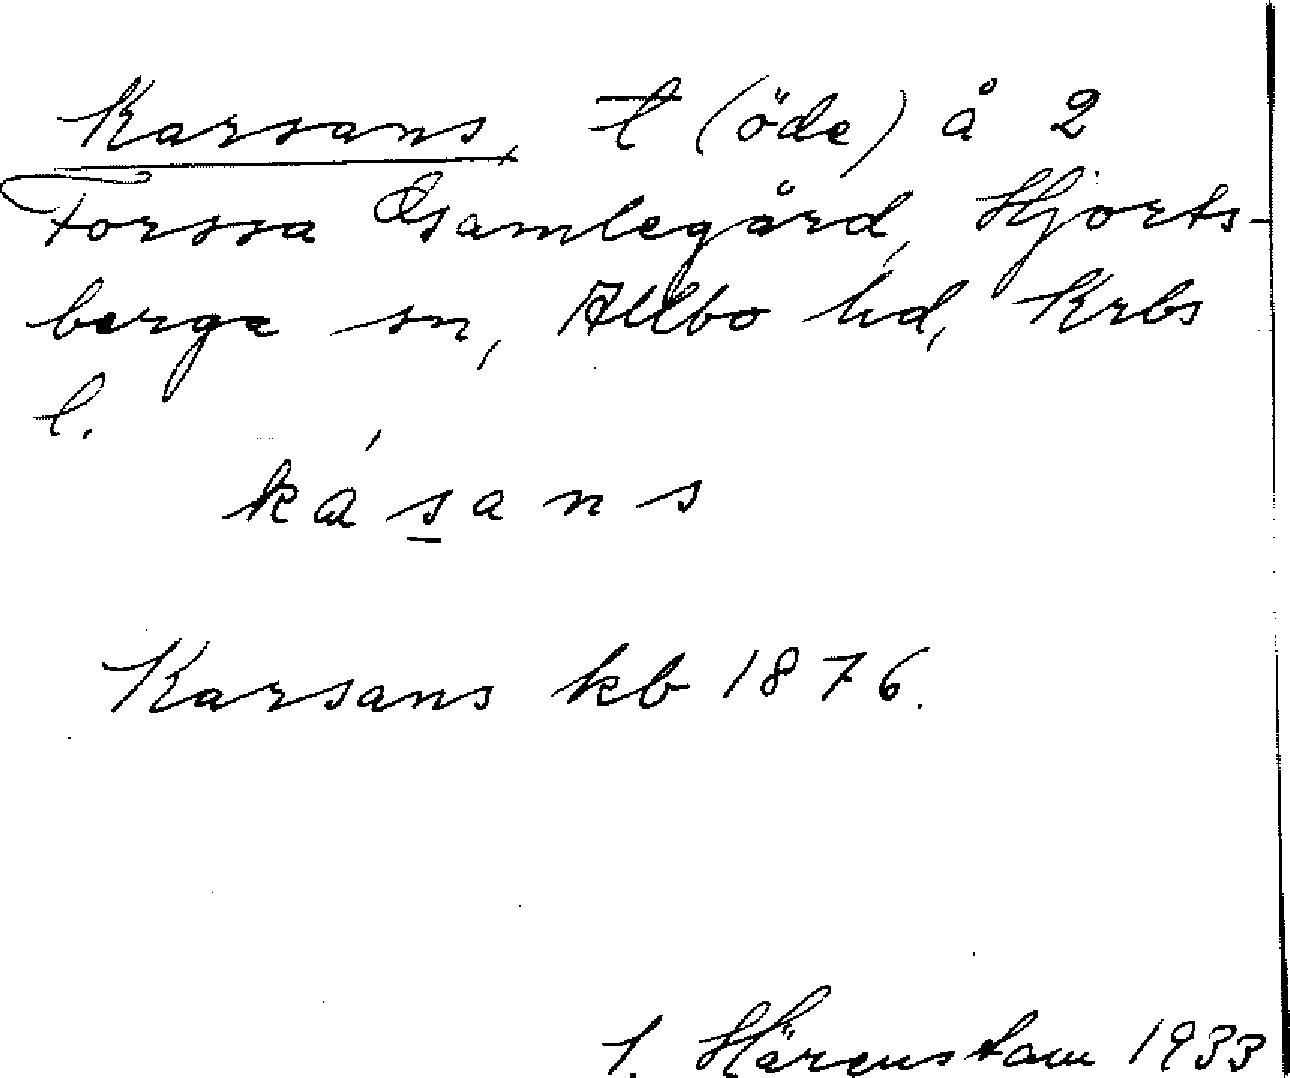 Karsans, t (öde) å 2
Forssa Gamlegård, Hjorts-
berga sn, Allbo hd, Krbs
l.
kásans
Karsans kb 1876.
I. Härenstam 1933